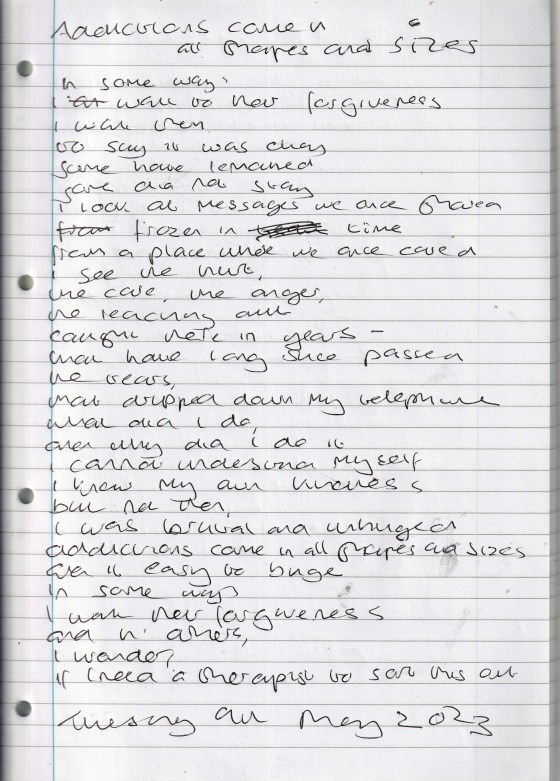 Addictions come in
all shapes and sizes
In some ways
I want to her forgiveness
I want them
to say it was okay
some have remained
some did not stay
I look at messages we once shared
frozen in time
from a place where we once cared
I see the hurt,
the care, the anger,
the reaching out
caught here in years -
that have long since passed
the tears,
that dripped down my telephone
what did I do,
and why did I do it
I cannot understand myself
I know my own kindness
but not then,
I was brutal and unhinged
addictions come in all shapes and sizes
and it easy to binge
In some ways
I want her forgiveness
and in others,
I wonder,
if I need a therapist to sort this out
Tuesday 9th May 2023